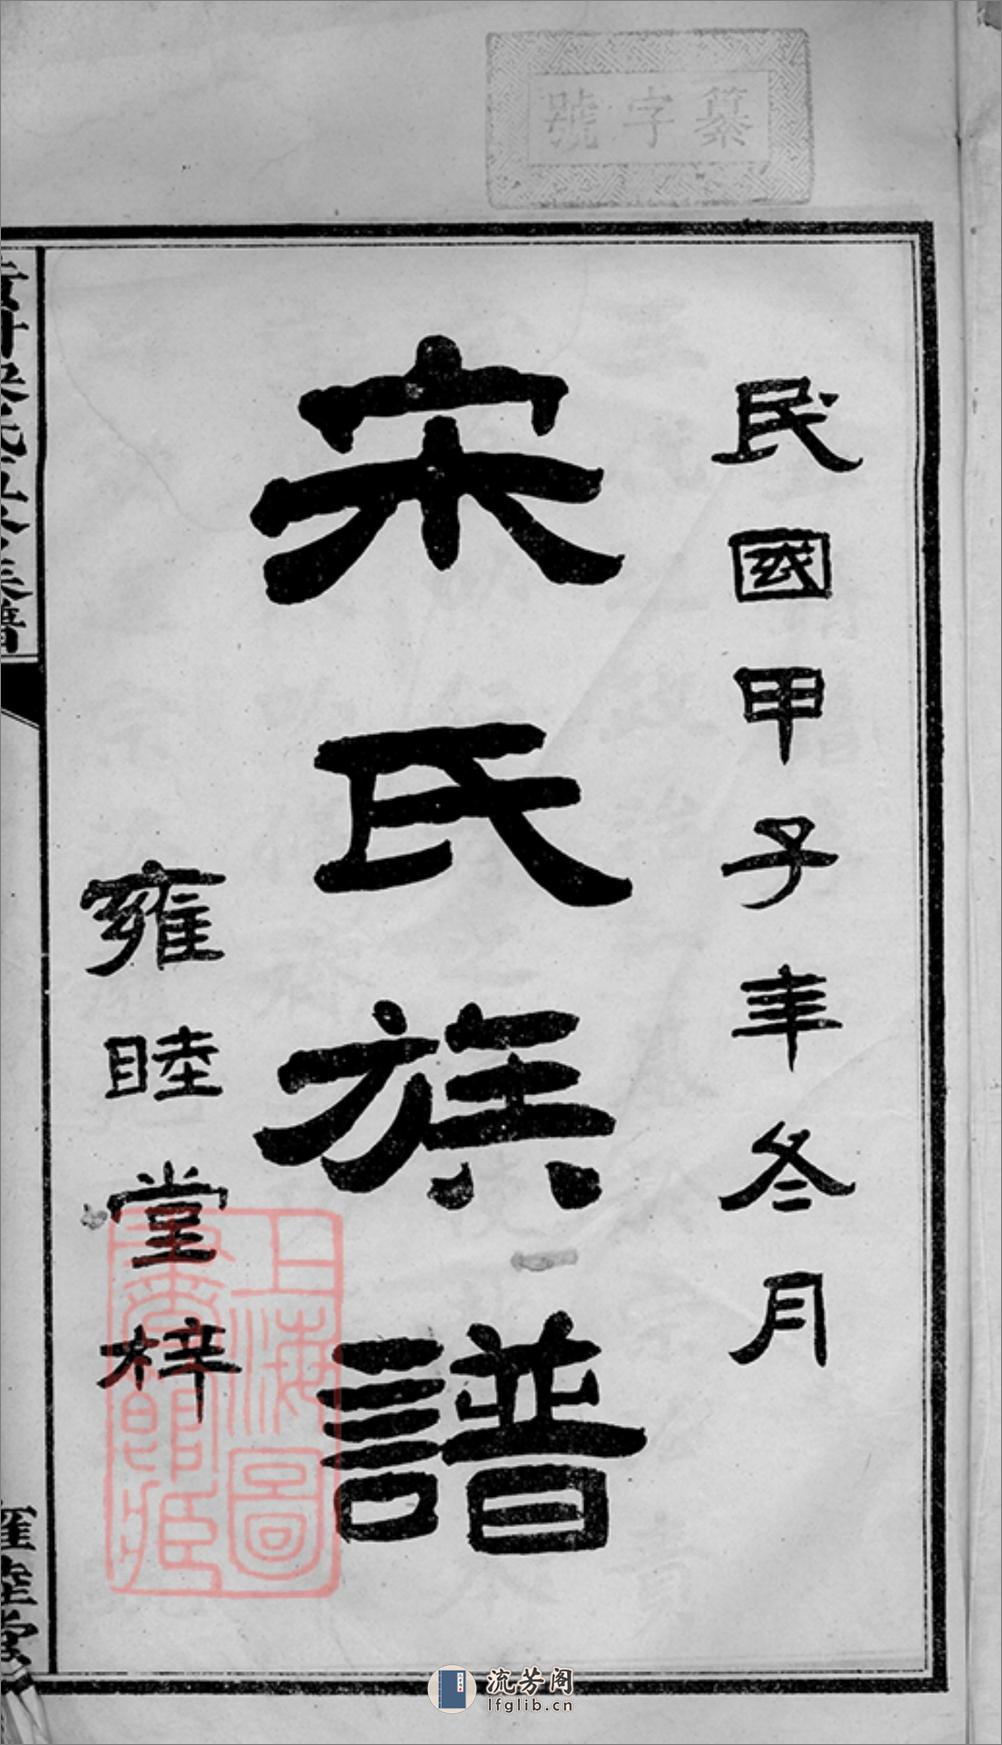 纂字號
民國甲子年冬月
宋氏族譜
雍睦堂梓
上海圖
書館藏
流芳阁
lfglib.cn